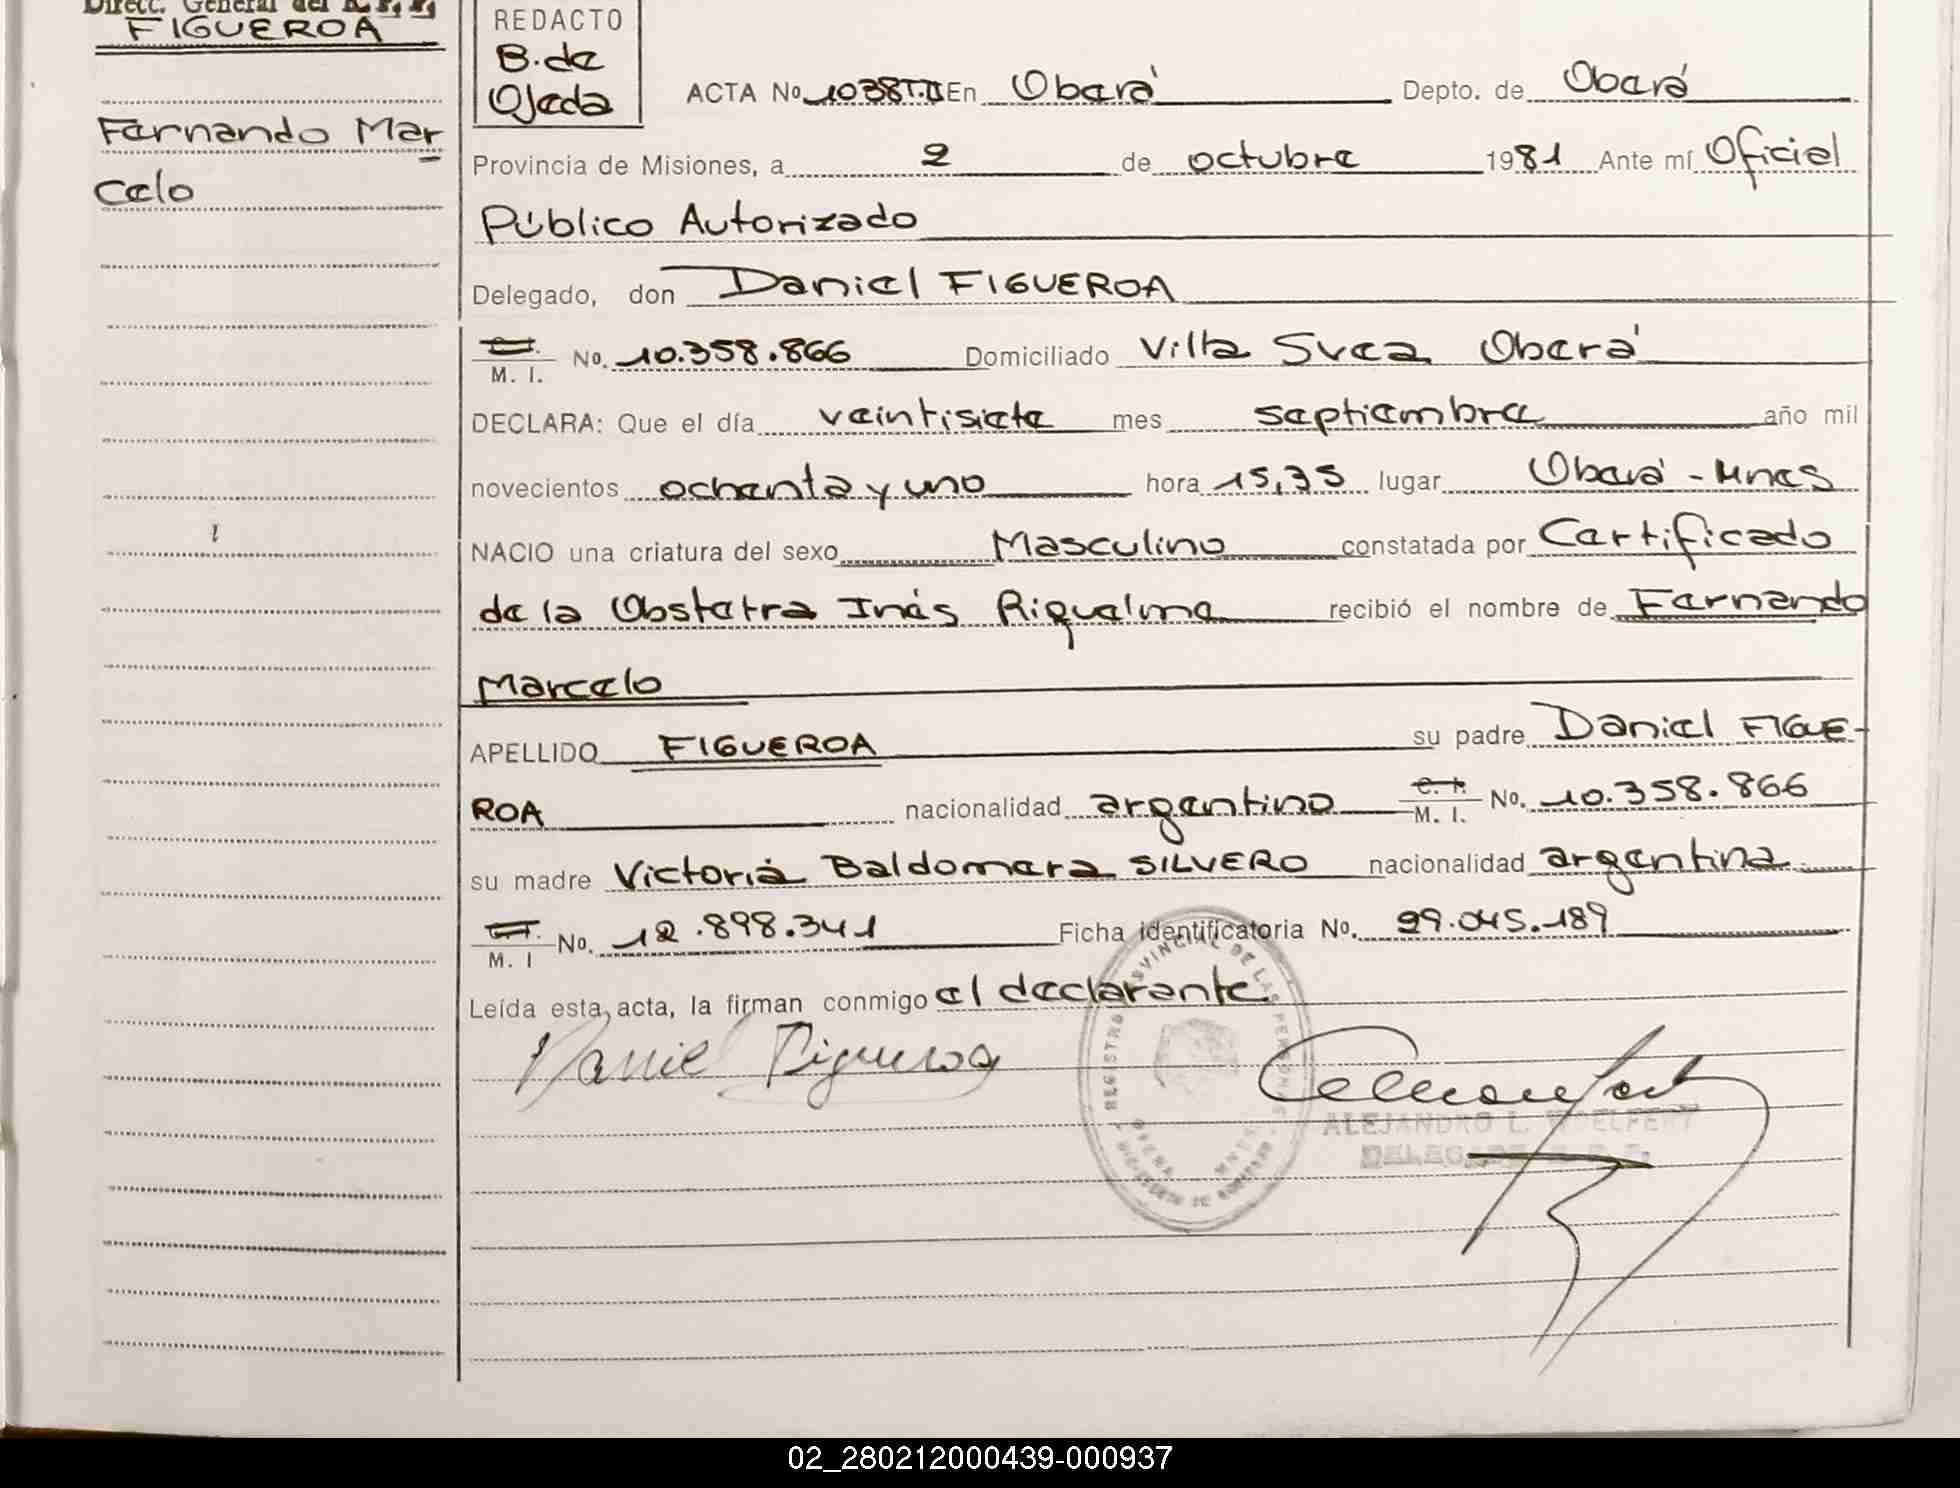 Direcc. General del R. P. P.
FIGUEROA
Fernando Mar
celo
REDACTO
B. de
Ojeda
ACTA No. 1038 T. II En Oberá Depto. de Oberá
Provincia de Misiones, a 2 de octubre 1981 Ante mí Oficial
Público Autorizado
Delegado, don Daniel FIGUEROA
M. I. No. 10.358.866 Domiciliado Villa Svea Oberá
DECLARA: Que el día veintisiete mes septiembre año mil
novecientos ochenta y uno hora 15,35 lugar Oberá - Mnes
NACIO una criatura del sexo Masculino constatada por Certificado
de la Obstetra Inés Riquelme recibió el nombre de Fernando
Marcelo
APELLIDO FIGUEROA su padre Daniel FIGUE-
ROA nacionalidad argentino C. I. M. I. No. 10.358.866
su madre Victoria Baldomera SILVERO nacionalidad argentina
M. I No. 12.898.341 Ficha identificatoria No. 29.045.189
Leída esta acta, la firman conmigo el declarante
Daniel Figueroa
REGISTRO PROVINCIAL DE LAS PERSONAS
OBERA MNES.
MINISTERIO DE GOBIERNO
ALEJANDRO L. WOELFERT
DELEGADO R. P. P.
02_280212000439-000937